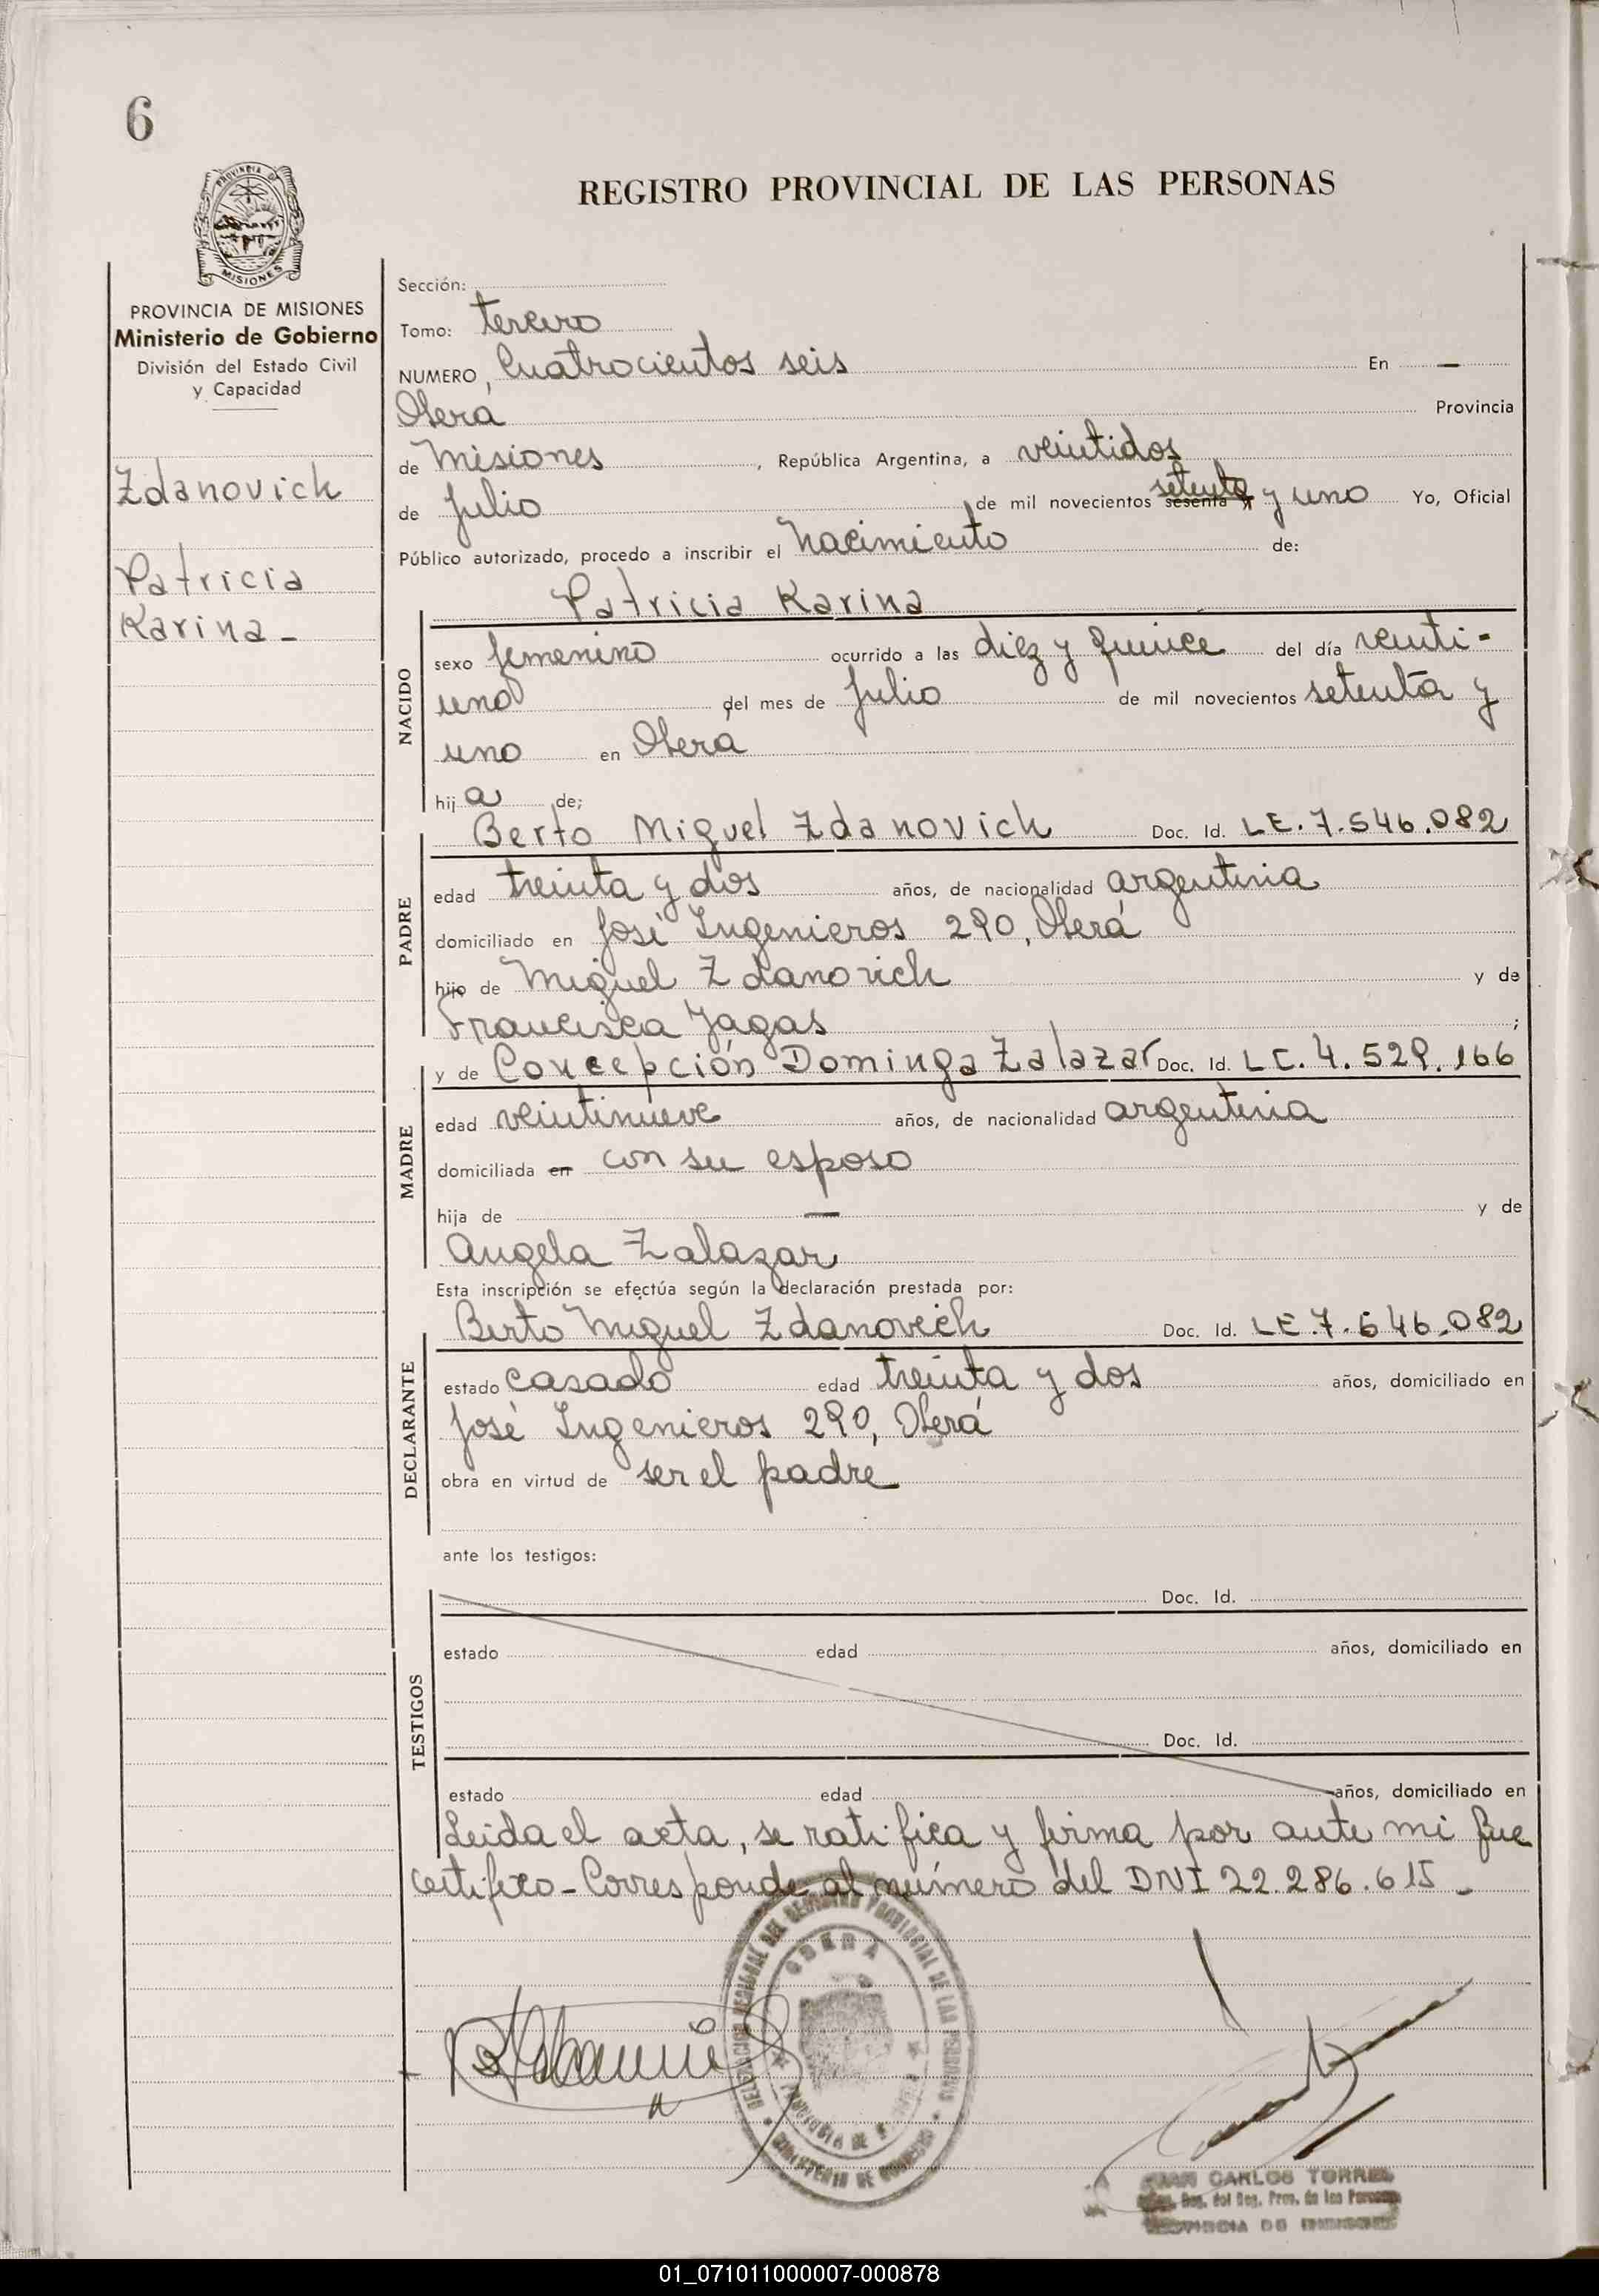 6
REGISTRO PROVINCIAL DE LAS PERSONAS
PROVINCIA DE MISIONES
Ministerio de Gobierno
División del Estado Civil
y Capacidad
Zdanovich
Patricia
Karina -
Sección:
Tomo: tercero
NUMERO, Cuatrocientos seis En —
Oberá Provincia
de Misiones, República Argentina, a veintidos
de Julio de mil novecientos sesenta setenta y uno Yo, Oficial
Público autorizado, procedo a inscribir el Nacimiento de:
NACIDO
Patricia Karina
sexo femenino ocurrido a las diez y quince del día veinti-
uno del mes de Julio de mil novecientos setenta y
uno en Oberá
hij a de;
PADRE
Berto Miguel Zdanovich Doc. Id. LE. 7.546.082
edad treinta y dos años, de nacionalidad argentina
domiciliado en José Ingenieros 290, Oberá
hijo de Miguel Zdanovich y de
Francisca Yagas ;
y de Concepción Dominga Zalazar Doc. Id. LC. 4.529.166
MADRE
edad veintinueve años, de nacionalidad argentina
domiciliada en con su esposo
hija de — y de
Angela Zalazar
Esta inscripción se efectúa según la declaración prestada por:
DECLARANTE
Berto Miguel Zdanovich Doc. Id. LE. 7.546.082
estado casado edad treinta y dos años, domiciliado en
José Ingenieros 290, Oberá
obra en virtud de ser el padre
ante los testigos:
TESTIGOS
Doc. Id.
estado edad años, domiciliado en
Doc. Id.
estado edad años, domiciliado en
Leida el acta, se ratifica y firma por ante mi que
certifico - Corresponde al número del DNI 22.286.615 -
DELEGACION REGIONAL DEL REGISTRO PROVINCIAL DE LAS PERSONAS
OBERA
MINISTERIO DE GOBIERNO
JUAN CARLOS TORRES
Reg. Prov. de las Personas
PROVINCIA DE MISIONES
01_071011000007-000878